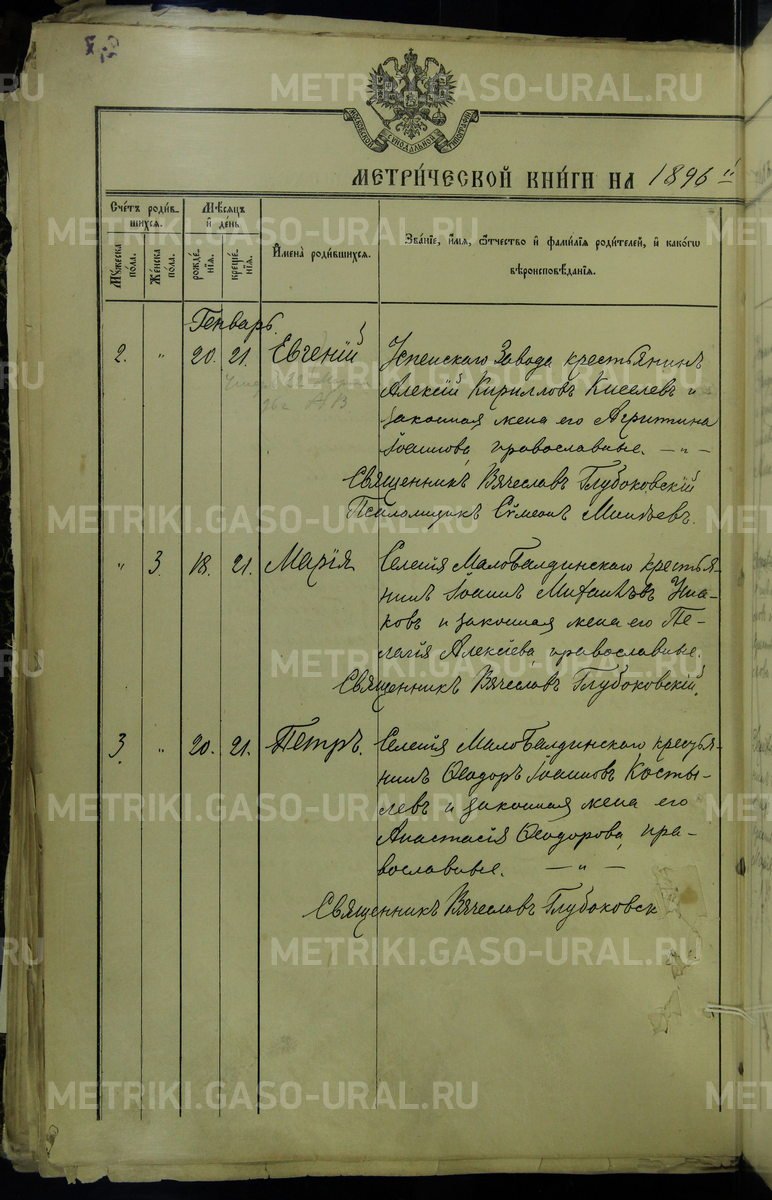 МОСКОВСКОЙ СѴНОДАЛЬНОЙ ТИПОГРАФІИ
МЕТРИ́ЧЕСКОЙ КНИ́ГИ НА 1896
Сче́тъ роди́в-
шихся.
Мѣ́сяцъ
и҆ де́нь
Му́жеска
по́ла.
Же́нска
по́ла.
рожде́-
нїя.
креще́-
нїя.
И҆мена̀ роди́вшихся.
Зва́нїе, и҆́мя, ѻ҆́тчество и҆ фами́лїя роди́телей, и҆ како́гѡ
вѣроисповѣ́данїя.
Генварь.
2. " 20. 21. Евгеній
Успенскаго Завода крестьянинъ
Алексій Кирилловъ Киселевъ и
законная жена его Агриппина
Іоаннова, православные. — " —
Священникъ Вячеславъ Глубоковскій
Псаломщикъ Сѵмеонъ
" 3. 18. 21. Марія
Селенія МалоБалдинскаго крестья-
нинъ Іоаннъ Михаилъвъ Уша-
ковъ и законная жена его Пе-
лагія Алексіева, православные.
Священникъ Вячеславъ Глубоковскій.
3. " 20. 21. Петръ.
Селенія МалоБалдинскаго крестья-
нинъ Ѳеодоръ Іоанновъ Косты-
левъ и законная жена его
Анастасія Ѳеодорова, пра-
вославные. — " —
Священникъ Вячеславъ Глубоковск
METRIKI.GASO-URAL.RU